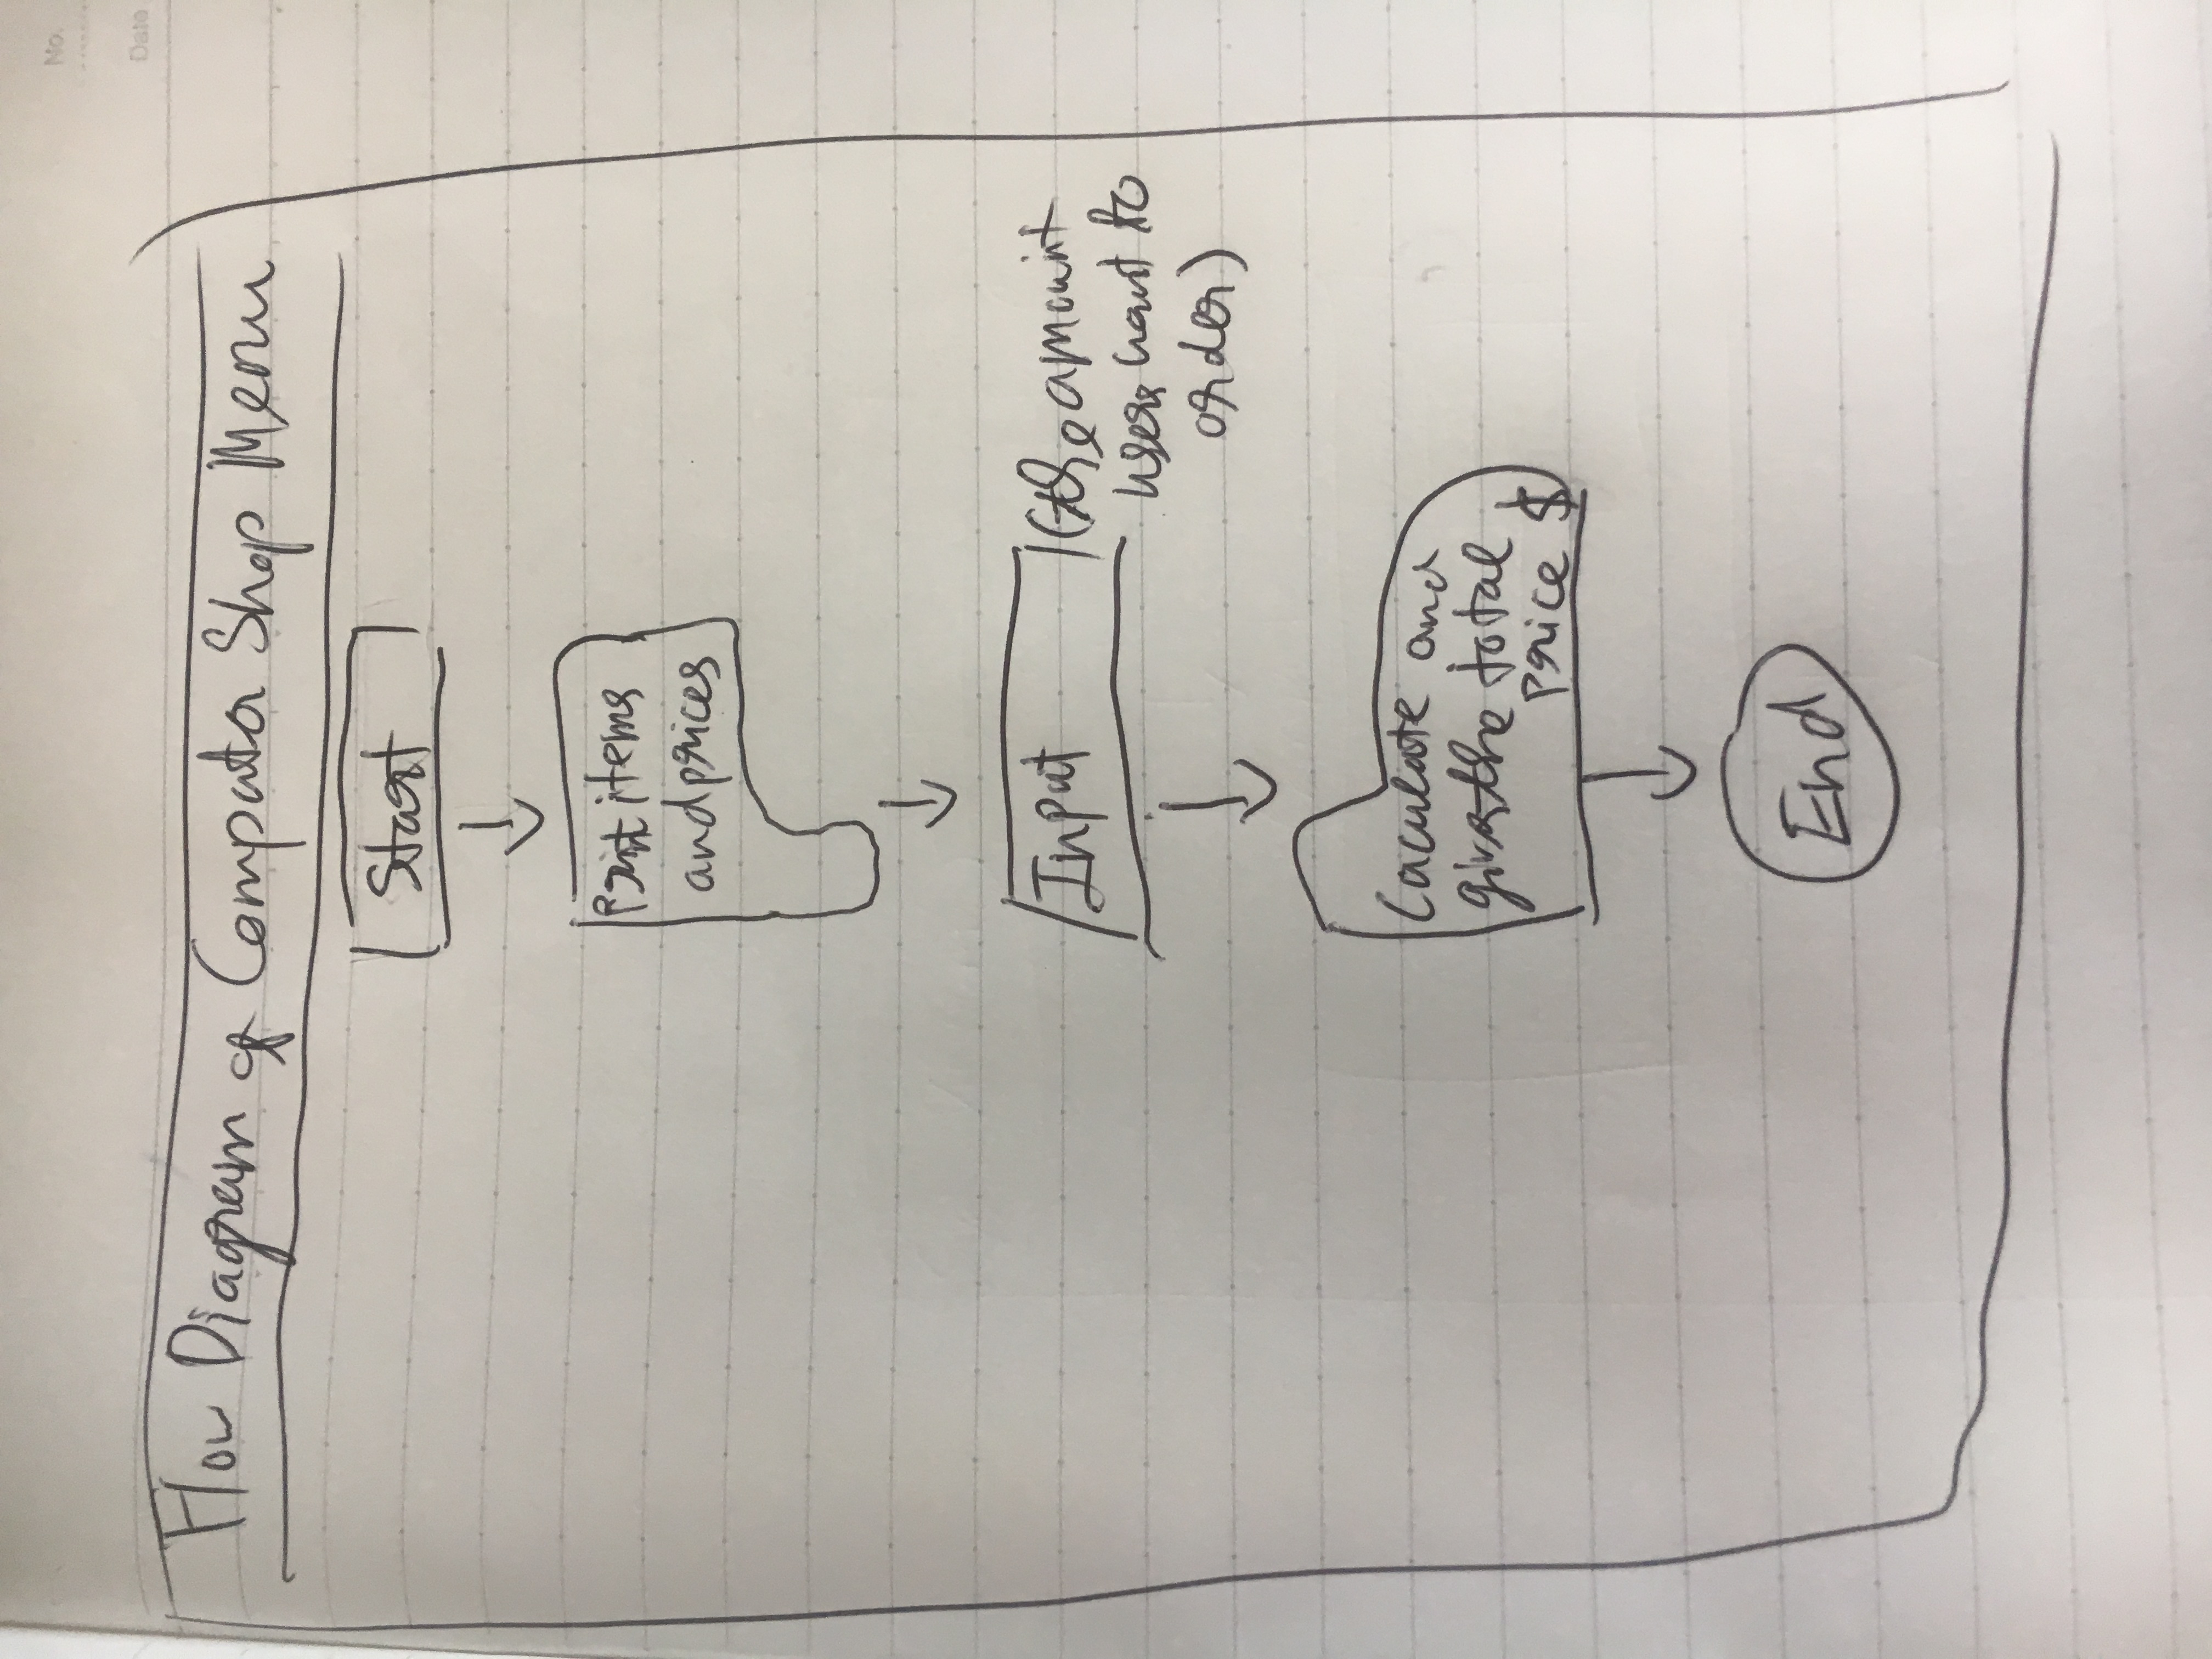 No.
Date
Flow Diagram of Computer Shop Menu
Start
Print items
and prices
Input
(the amount
user want to
order)
Caculate and
gives the total
price $
End